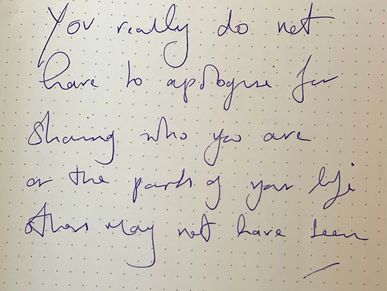 You really do not
have to apologise for
sharing who you are
or the parts of your life
others may not have seen